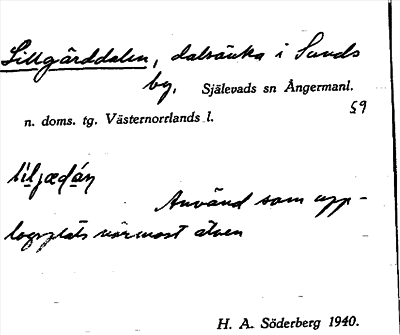 Lillgärddalen, dalsänka i Sunds
by. Själevads sn Ångermanl.
59
n. doms. tg. Västernorrlands l.
Använd som upp-
lagsplats närmast älven
H. A. Söderberg 1940.